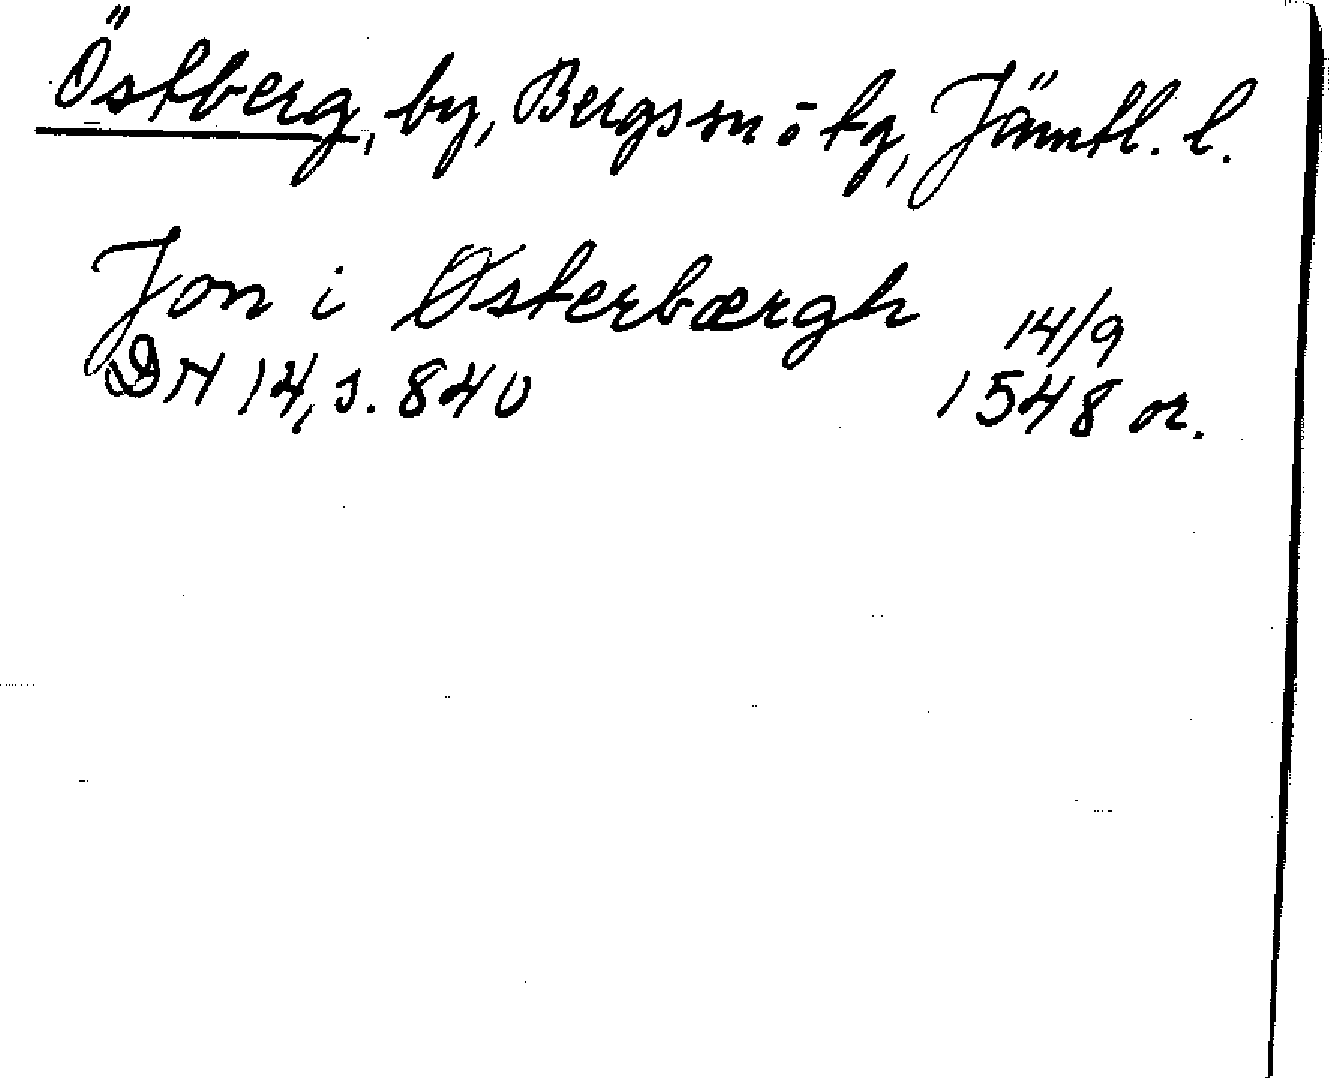 Östberg, by, Bergs sn o tg, Jämtl. l.
Jon i Østerbærgh 14/9
DN 14, s. 840 1548 or.